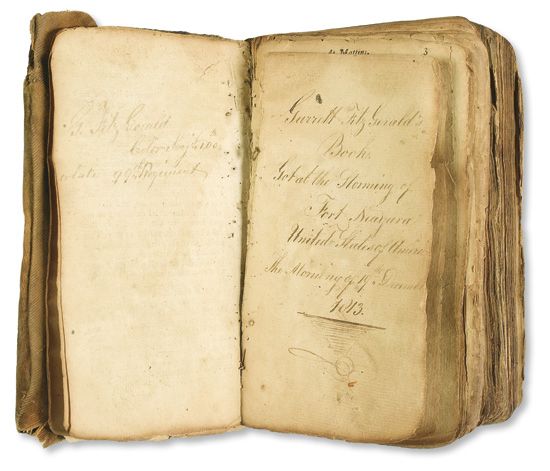 G. Fitz Gerald
Color Serjt 100
late 99th Regiment
3
Garrett Fitz Gerald's
Book
Got at the Storming of
Fort Niagara
United States of Ameri
the Morning of 19th Decembe
1813.